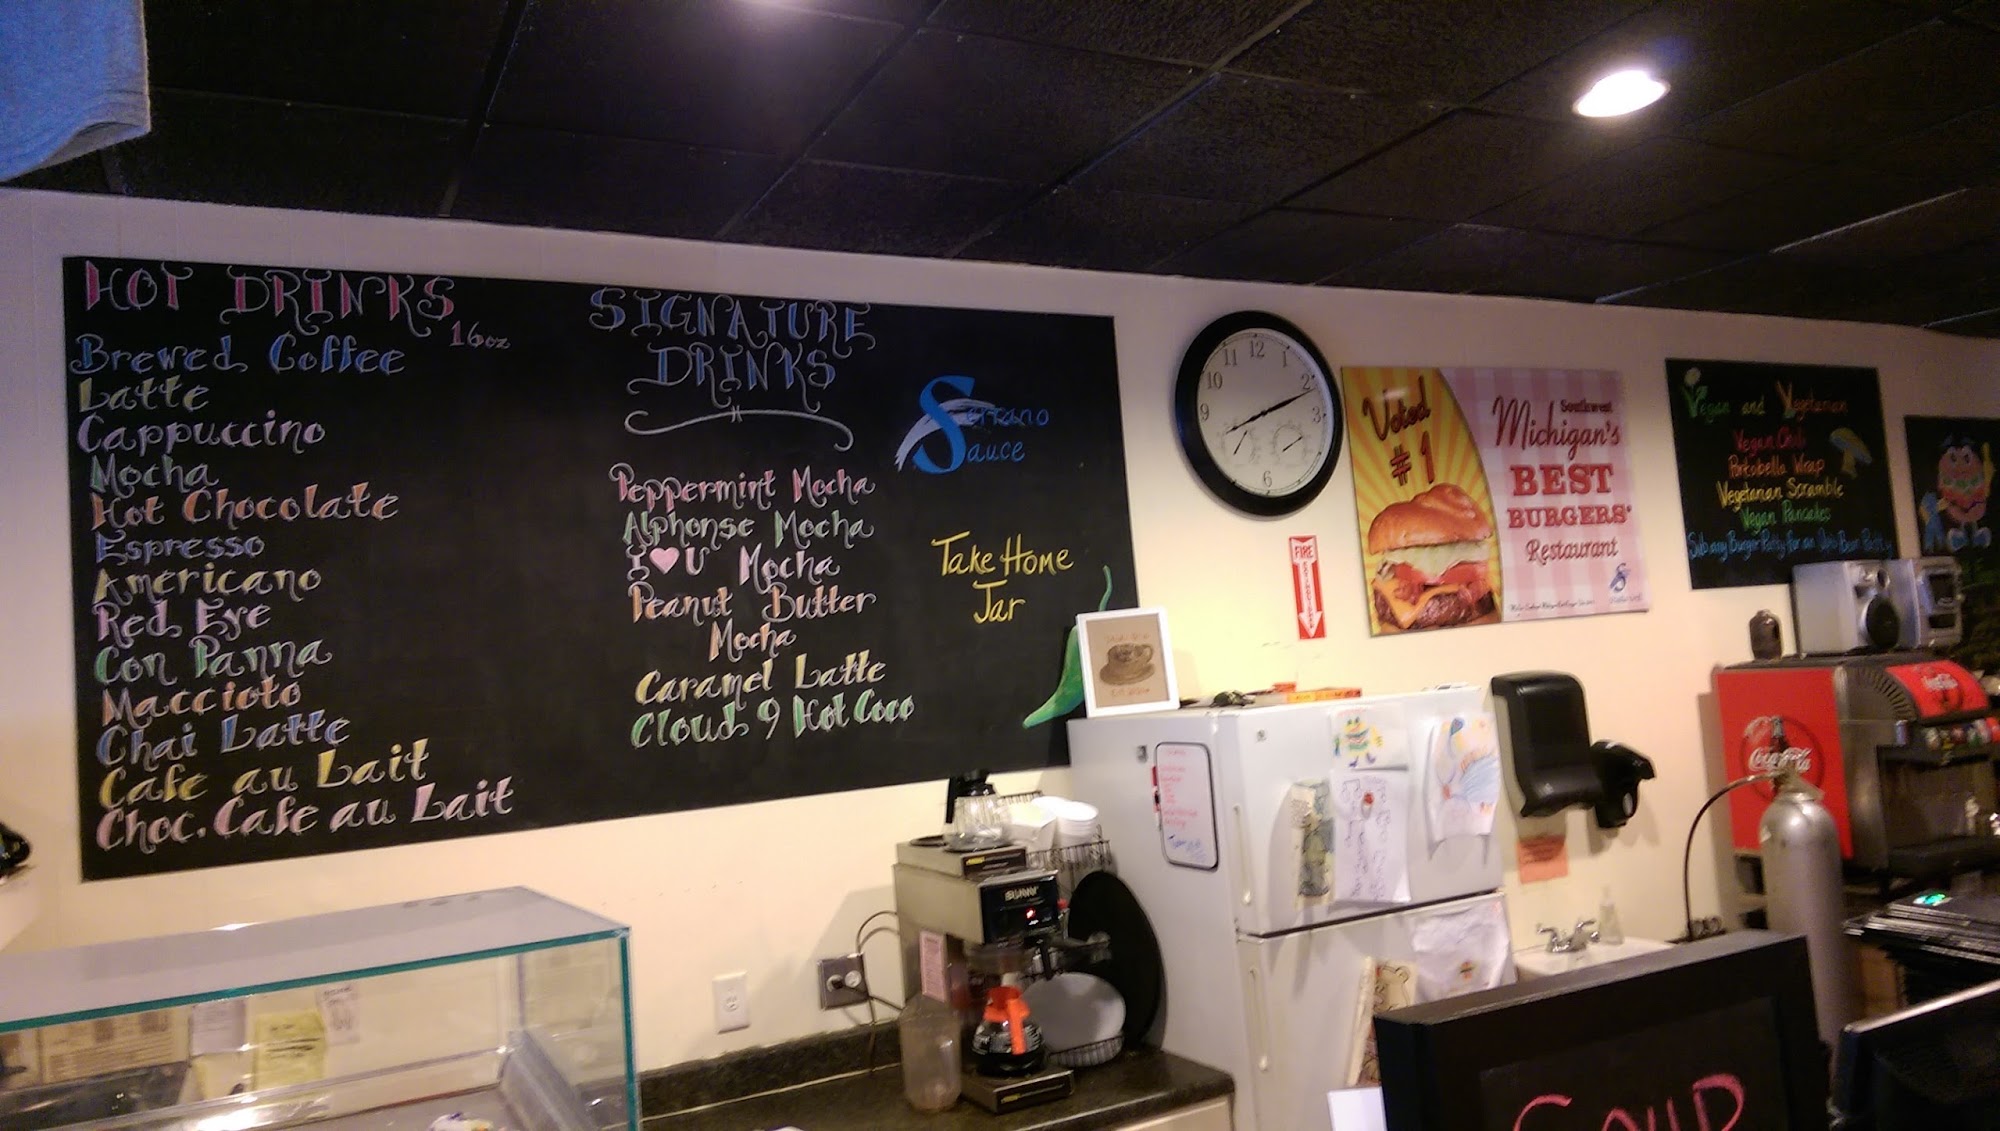 HOT DRINKS
16oz
Brewed Coffee
Latte
Cappuccino
Mocha
Hot Chocolate
Espresso
Americano
Red Eye
Con Panna
Maccioto
Chai Latte
Cafe au Lait
Choc. Cafe au Lait
SIGNATURE
DRINKS
Peppermint Mocha
Alphonse Mocha
I ♥ U Mocha
Peanut Butter
Mocha
Caramel Latte
Cloud 9 Hot Coco
Serrano
Sauce
Take Home
Jar
12
1
2
3
6
8
9
10
11
FIRE
Voted
#1
Southwest
Michigan's
BEST
BURGERS'
Restaurant
Vegan and Vegetarian
Vegan Chili
Portobella Wrap
Vegetarian Scramble
Vegan Pancakes
Sub any Burger Patty for an
BUNN
Coca-Cola
SOUP